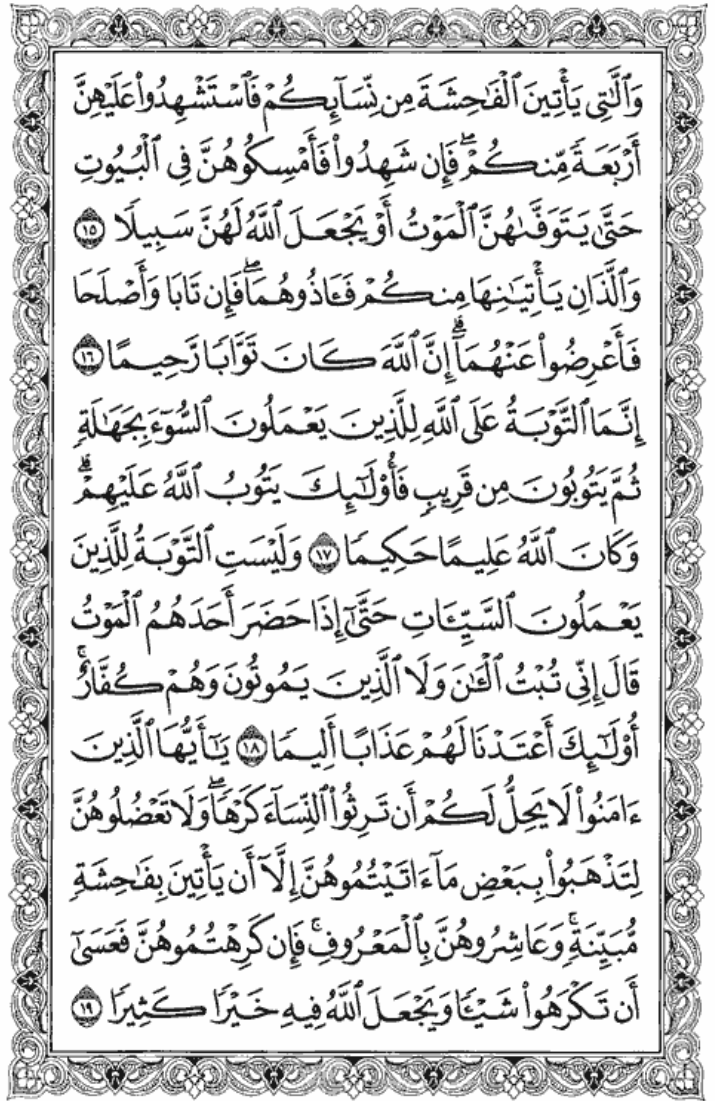 وَٱلَّٰتِى يَأْتِينَ ٱلْفَٰحِشَةَ مِن نِّسَآئِكُمْ فَٱسْتَشْهِدُوا۟ عَلَيْهِنَّ
أَرْبَعَةً مِّنكُمْ ۖ فَإِن شَهِدُوا۟ فَأَمْسِكُوهُنَّ فِى ٱلْبُيُوتِ
حَتَّىٰ يَتَوَفَّىٰهُنَّ ٱلْمَوْتُ أَوْ يَجْعَلَ ٱللَّهُ لَهُنَّ سَبِيلًا ١٥
وَٱلَّذَانِ يَأْتِيَٰنِهَا مِنكُمْ فَـَٔاذُوهُمَا ۖ فَإِن تَابَا وَأَصْلَحَا
فَأَعْرِضُوا۟ عَنْهُمَآ ۗ إِنَّ ٱللَّهَ كَانَ تَوَّابًا رَّحِيمًا ١٦
إِنَّمَا ٱلتَّوْبَةُ عَلَى ٱللَّهِ لِلَّذِينَ يَعْمَلُونَ ٱلسُّوٓءَ بِجَهَٰلَةٍ
ثُمَّ يَتُوبُونَ مِن قَرِيبٍ فَأُو۟لَٰٓئِكَ يَتُوبُ ٱللَّهُ عَلَيْهِمْ ۗ
وَكَانَ ٱللَّهُ عَلِيمًا حَكِيمًا ١٧ وَلَيْسَتِ ٱلتَّوْبَةُ لِلَّذِينَ
يَعْمَلُونَ ٱلسَّيِّـَٔاتِ حَتَّىٰٓ إِذَا حَضَرَ أَحَدَهُمُ ٱلْمَوْتُ
قَالَ إِنِّى تُبْتُ ٱلْـَٰٔنَ وَلَا ٱلَّذِينَ يَمُوتُونَ وَهُمْ كُفَّارٌ ۚ
أُو۟لَٰٓئِكَ أَعْتَدْنَا لَهُمْ عَذَابًا أَلِيمًا ١٨ يَٰٓأَيُّهَا ٱلَّذِينَ
ءَامَنُوا۟ لَا يَحِلُّ لَكُمْ أَن تَرِثُوا۟ ٱلنِّسَآءَ كَرْهًا ۖ وَلَا تَعْضُلُوهُنَّ
لِتَذْهَبُوا۟ بِبَعْضِ مَآ ءَاتَيْتُمُوهُنَّ إِلَّآ أَن يَأْتِينَ بِفَٰحِشَةٍ
مُّبَيِّنَةٍ ۚ وَعَاشِرُوهُنَّ بِٱلْمَعْرُوفِ ۚ فَإِن كَرِهْتُمُوهُنَّ فَعَسَىٰٓ
أَن تَكْرَهُوا۟ شَيْـًٔا وَيَجْعَلَ ٱللَّهُ فِيهِ خَيْرًا كَثِيرًا ١٩